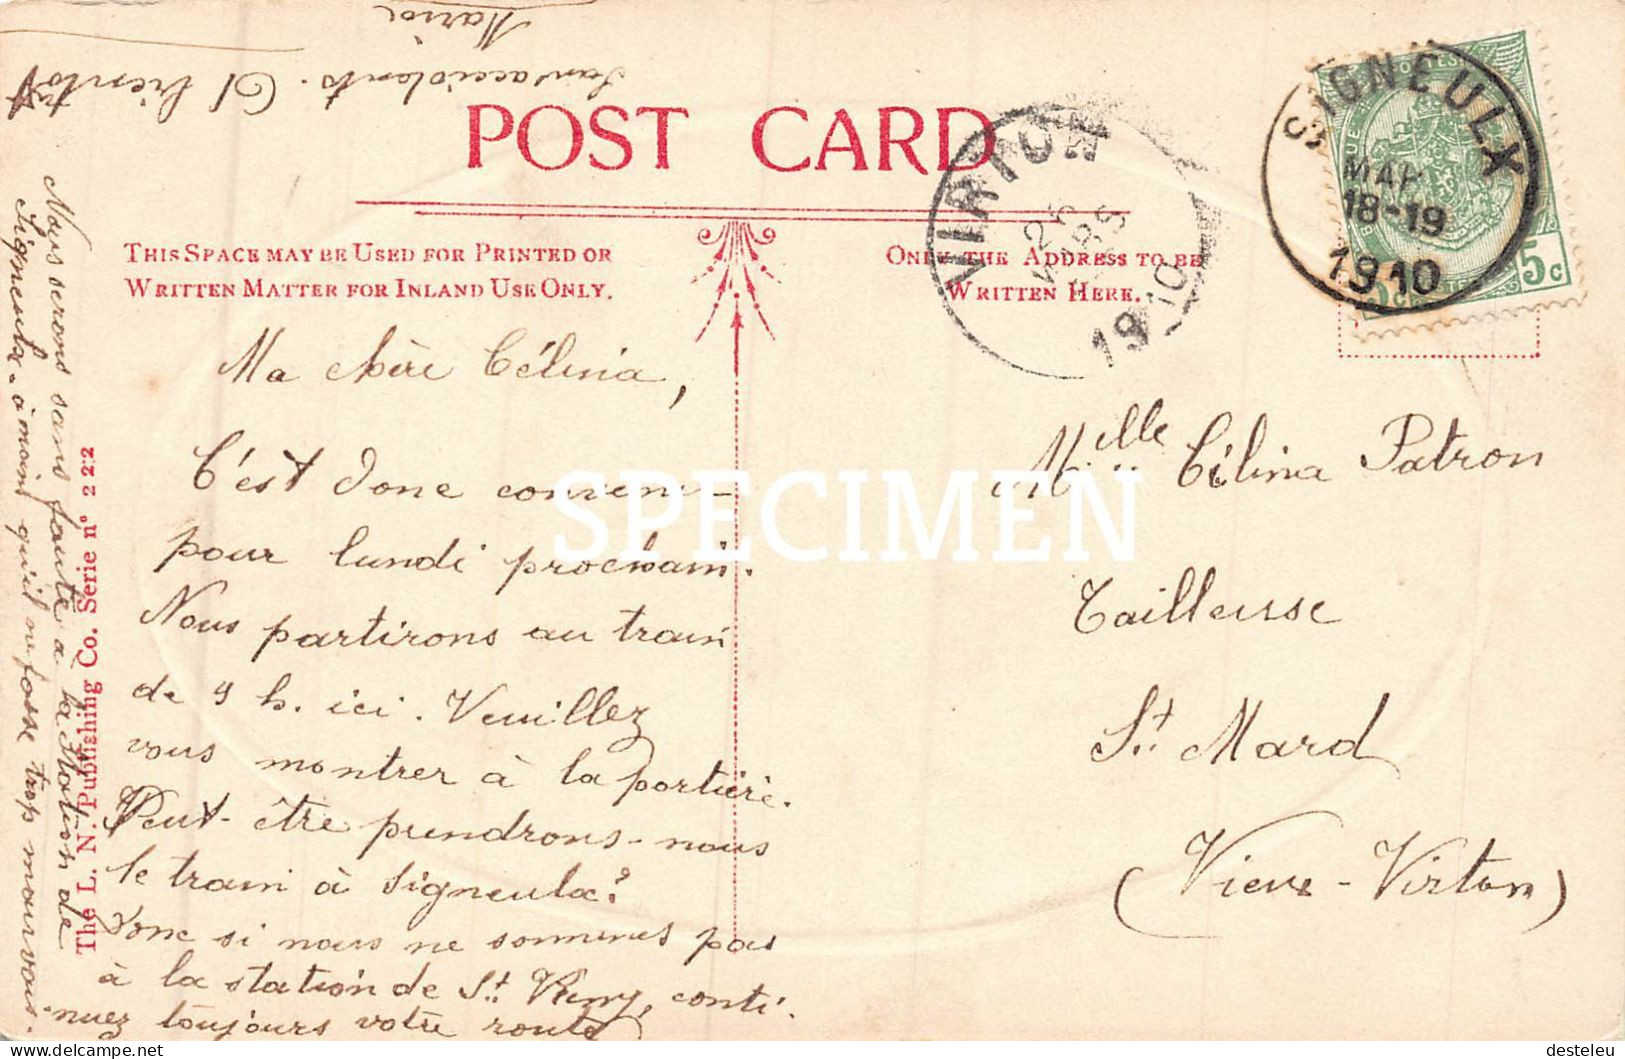 Maria
Sansacciolento. El Vicento
POST CARD
THIS SPACE MAY BE USED FOR PRINTED OR
WRITTEN MATTER FOR INLAND USE ONLY.
ONLY THE ADDRESS TO BE
WRITTEN HERE.
VIRTON
26
MARS
1910
SIGNEULX
MAR
18-19
1910
5c
5c
Ma chère Célina,
C'est donc convenu
pour lundi prochain.
Nous partirons au train
de 9 h. ici. Veuillez
vous montrer à la portière.
Peut-être prendrons-nous
le train à Signeulx?
Donc si nous ne sommes pas
à la station de St. Remy, conti-
nuez toujours votre route
Nous serons sans faute à la station de
Signeulx - à moins qu'il ne fasse trop mauvais.
The L. N. Publishing Co. Serie n° 222
Melle Célina Patron
Tailleuse
St. Mard
(Vieux-Virton)
SPECIMEN
desteleu